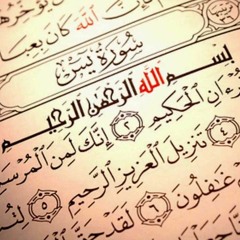 اللَّهَ كَانَ بِعِبَا
سُورَةُ يسٓ
بِسْمِ اللَّهِ الرَّحْمَٰنِ الرَّحِيمِ
ءَانِ الْحَكِيمِ ٢ إِنَّكَ لَمِنَ الْمُرْسَ
٤ تَنزِيلَ الْعَزِيزِ الرَّحِيمِ ٥ لِتُن
غَٰفِلُونَ ٦ لَقَدْ حَقَّ